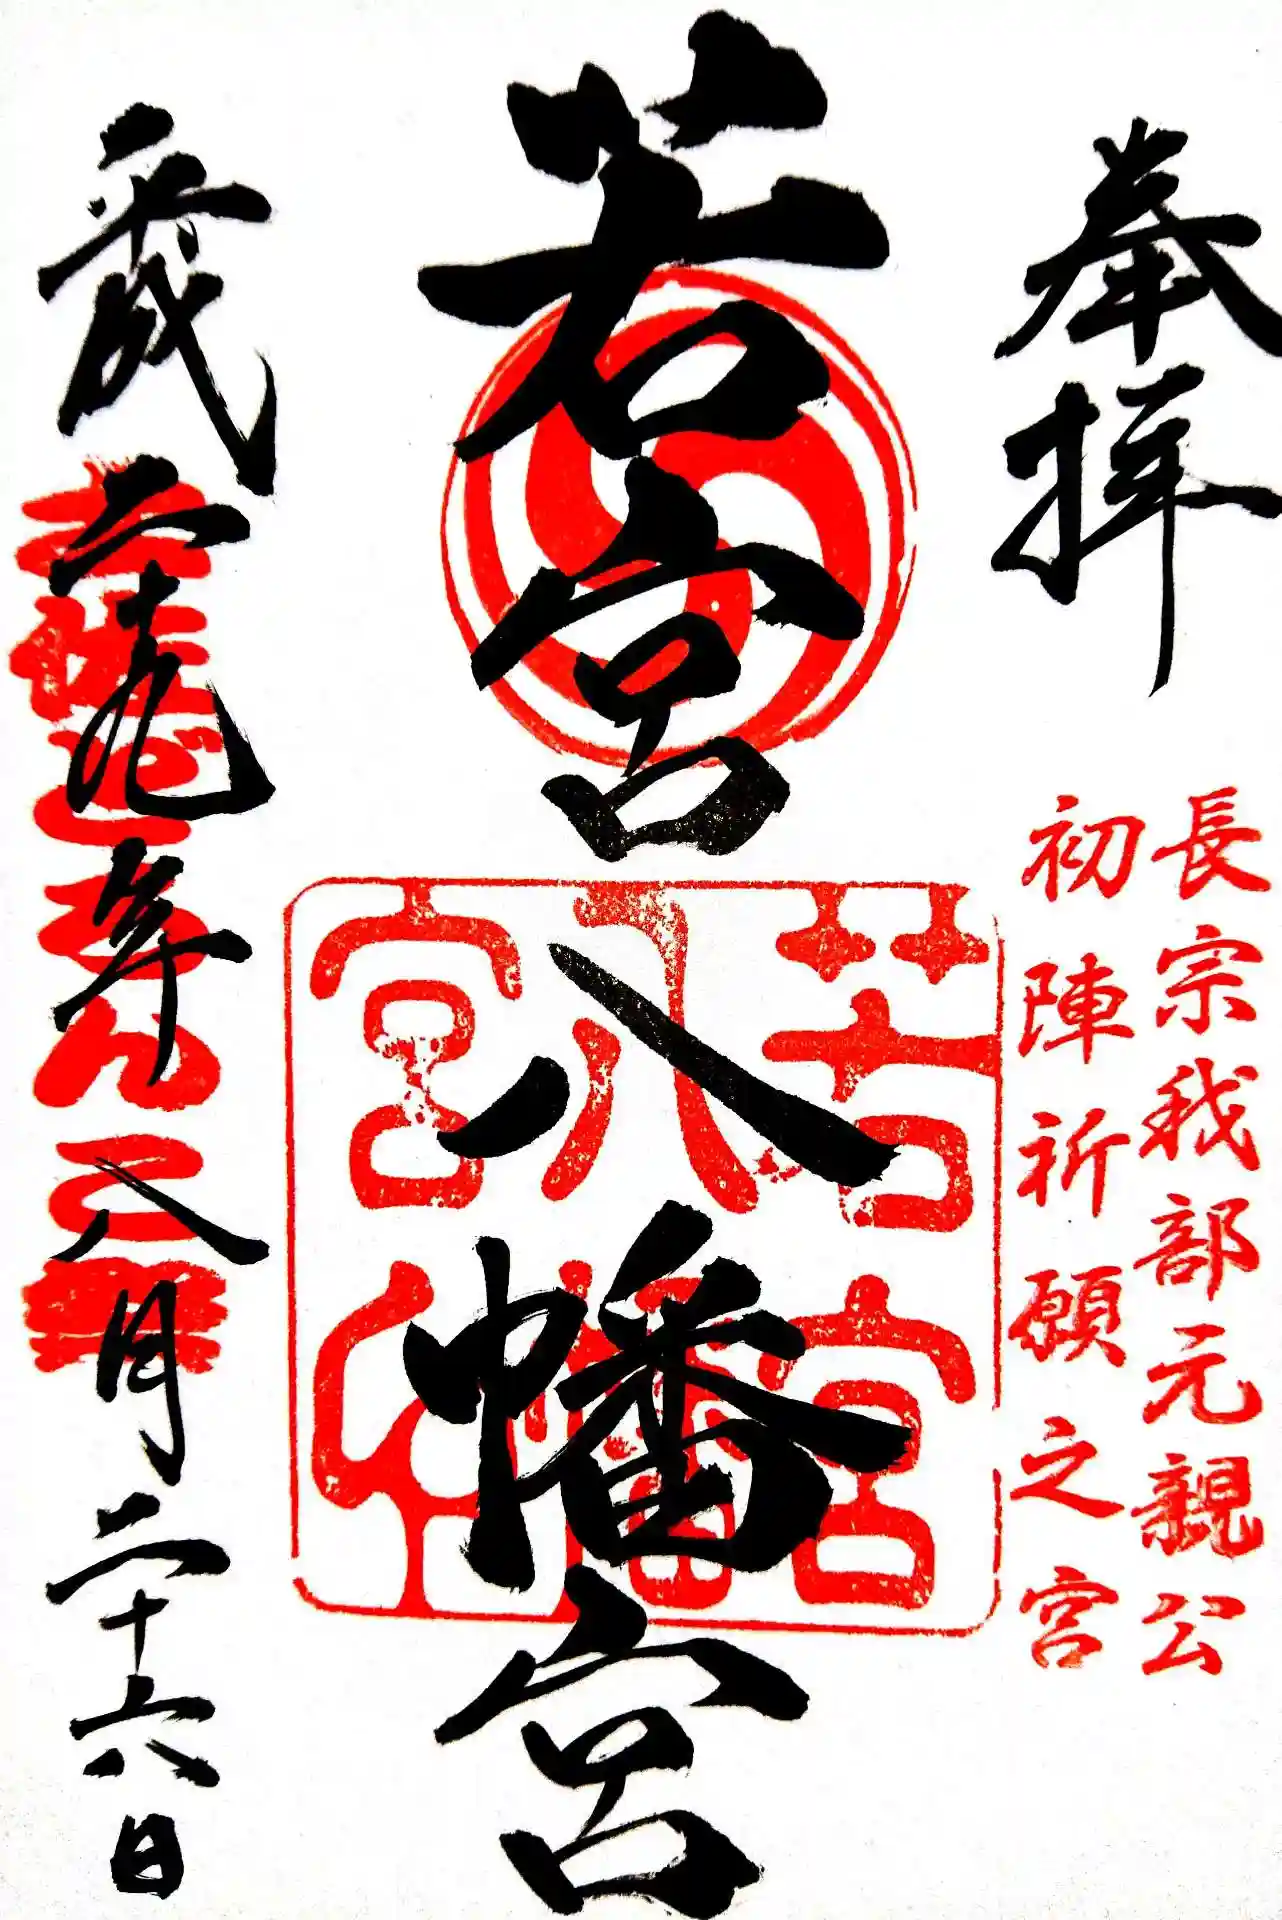 奉拝
長宗我部元親公
初陣祈願之宮
若宮八幡宮
若宮
八幡
宮印
平成二十九年八月二十六日